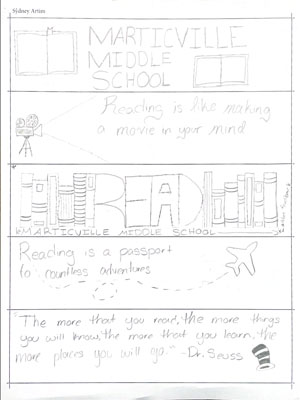 Sydney Artim
MARTICVILLE
MIDDLE
SCHOOL
Reading is like making
a movie in your mind
READ
MARTICVILLE MIDDLE SCHOOL
Reading is a passport
to countless adventures
"The more that you read, the more things
you will know, the more that you learn, the
more places you will go." -Dr. Seuss